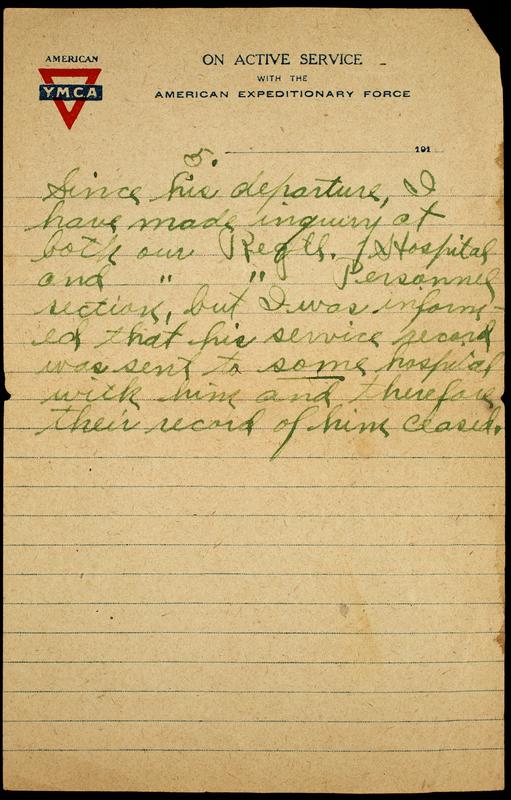 AMERICAN
Y.M.C.A
ON ACTIVE SERVICE
WITH THE
AMERICAN EXPEDITIONARY FORCE
191
3.
Since his departure, I
have made inquiry at
both our Regtl. Hospital
and " " Personnel
section, but I was inform-
ed that his service record
was sent to some hospital
with him and therefore
their record of him ceased.